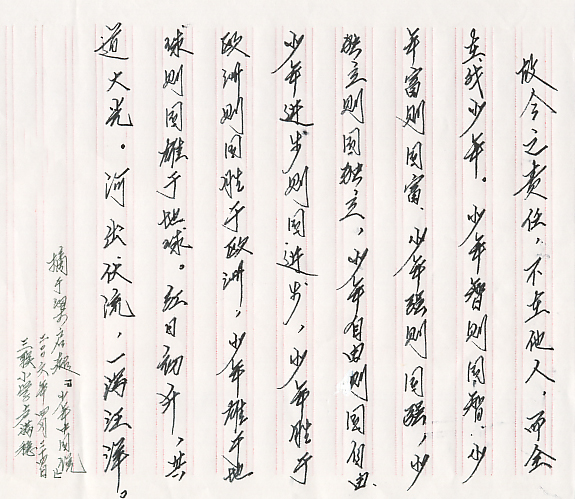 故今之责任，不在他人，而全
在我少年。少年智则国智，少
年富则国富，少年强则国强，少
独立则国独立，少年自由则国自由，
少年进步则国进步，少年胜于
欧洲则国胜于欧洲，少年雄于地
球则国雄于地球。红日初升，其
道大光。河出伏流，一泻汪洋。
摘于梁启超《少年中国说》
二〇〇六年四月二十
三联小学